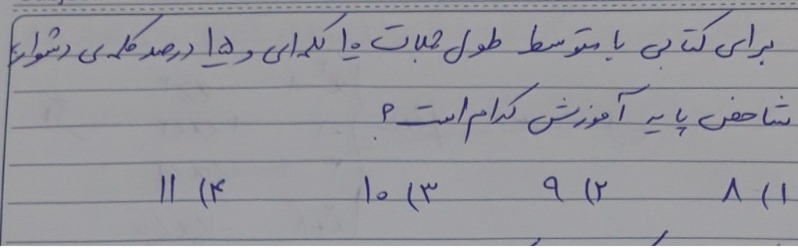 برای کتابی با متوسط طول جملات ۱۰ کلمه‌ای و ۱۵ درصد کلمه‌ی دشوار،
شاخص پایه آموزش کدام است؟
۱) ۸ ۲) ۹ ۳) ۱۰ ۴) ۱۱